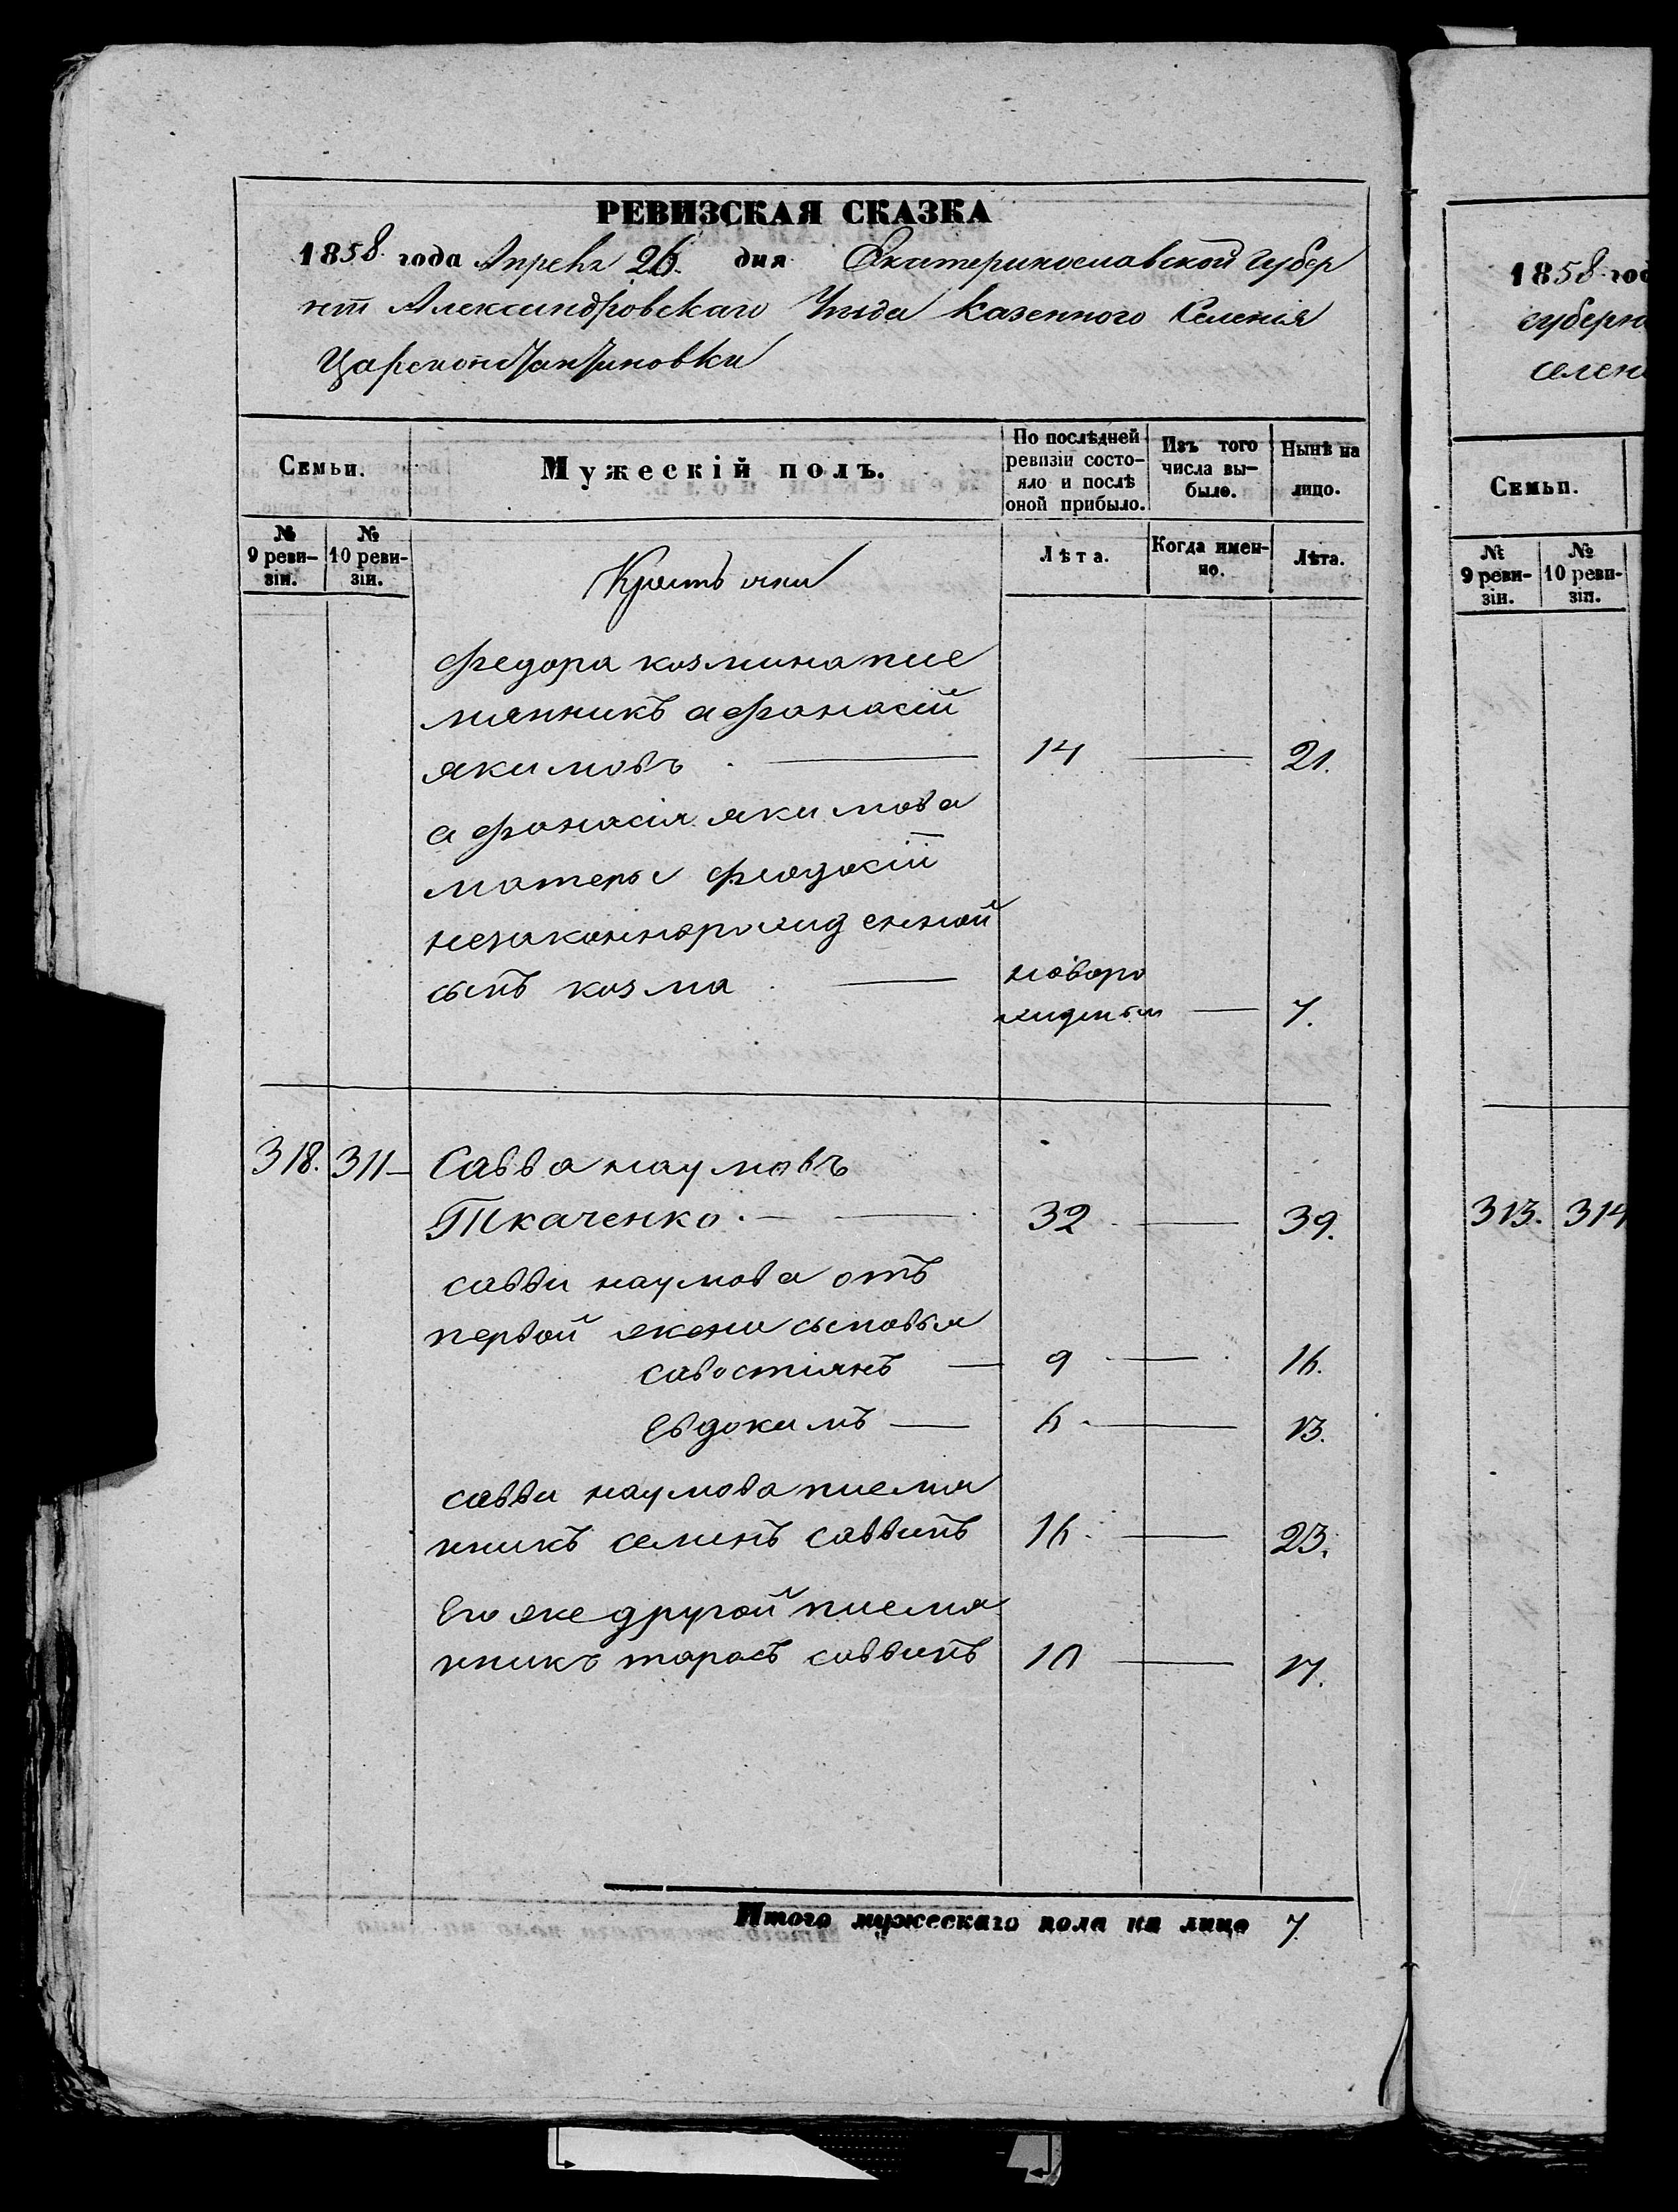 РЕВИЗСКАЯ СКАЗКА
1858 года Апреля 26. дня Екатеринославской Губер
ніи Александровскаго Уезда Казенного Селенія
Цареконстантиновки
Семьи.
Мужескій полъ.
По послѣдней ревизіи состо-
яло и послѣ
оной прибыло.
Изъ того
числа вы-
было.
Нынѣ на
лицо.
№
9 реви-
зіи.
№
10 реви-
зіи.
Лѣта.
Когда имен-
но.
Лѣта.
Федора козмина пле
мянникъ афонасій
якимовъ 14 21.
афонасія якимова
матери феодосіи
незаконнорожденной
сынъ козма новоро
жденъ 7.
318. 311 Савва наумовъ
Ткаченко 32 39.
савви наумова отъ
первой жены сыновья
савостіянъ 9 16.
Евдокимъ 6 13.
савви наумова племя
нникъ семенъ саввинъ 16 23.
Его же другой племя
нникъ тарасъ саввинъ 10 17.
Итого мужескаго пола на лицо 7
1858 год
губерн
селен
Семьи.
№
9 реви-
зіи.
№
10 реви-
зіи.
313. 314